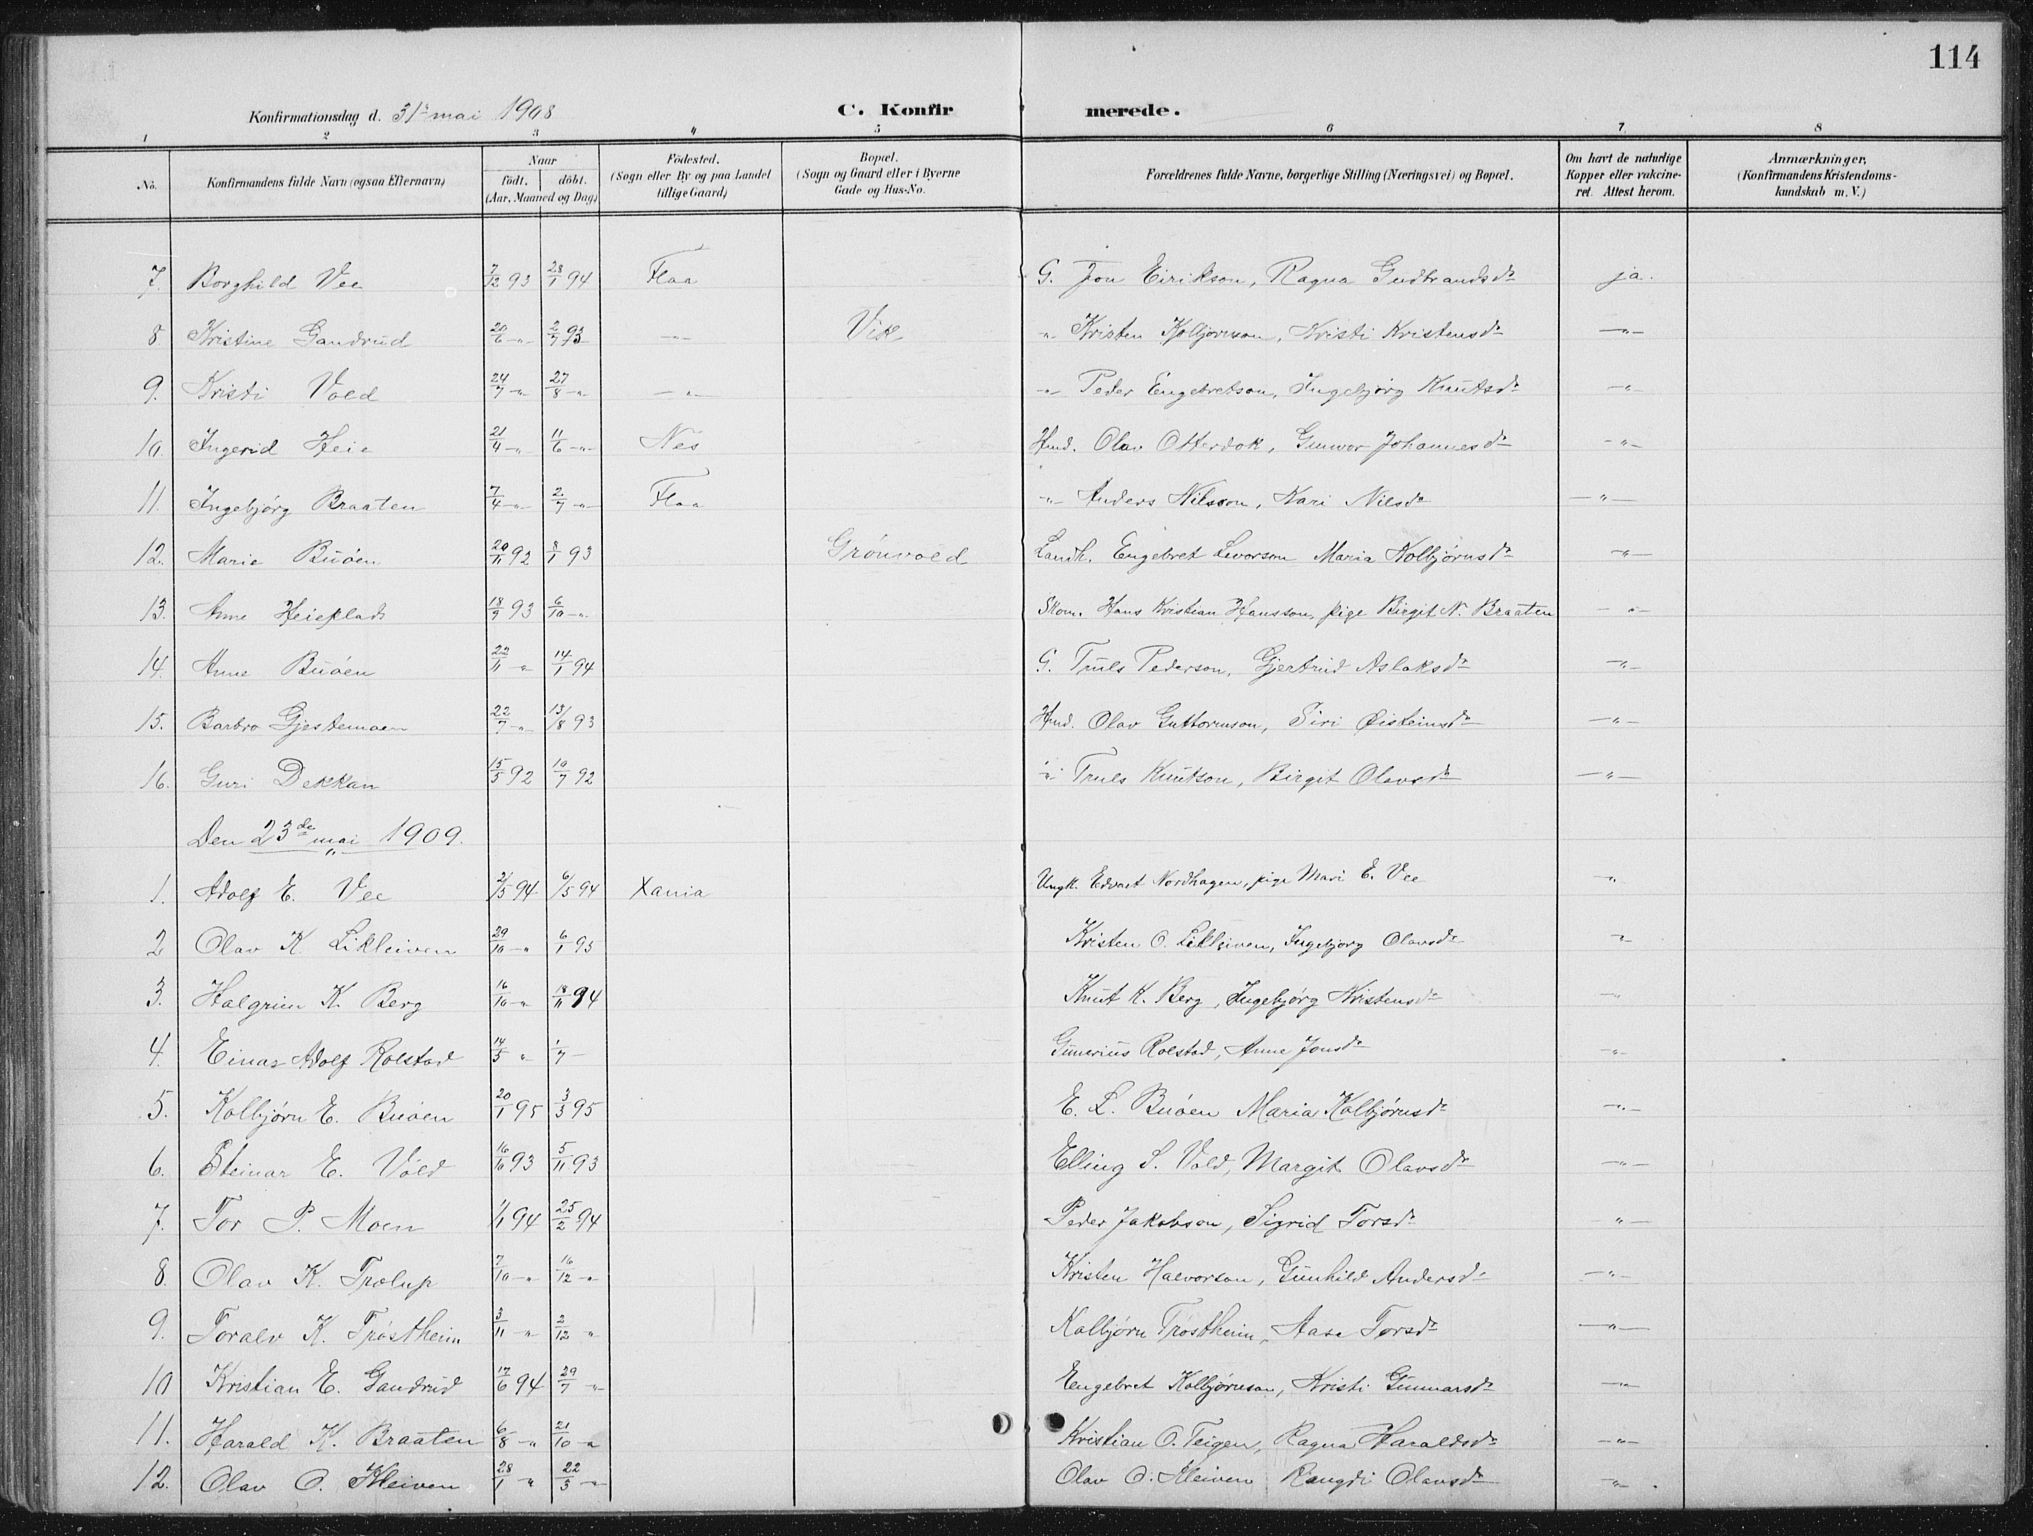 114
Konfirmationsdag d. 31te mai 1908 C. Konfir merede.
1 2 3 4 5 6 7 8
No. Konfirmandens fulde Navn (ogsaa Efternavn) Naar födt. döbt. (Aar, Maaned og Dag) Födested. (Sogn eller By og paa Landet tillige Gaard) Bopæl. (Sogn og Gaard eller i Byerne Gade og Hus-No. Forældrenes fulde Navne, borgerlige Stilling (Næringsvei) og Bopæl. Om havt de naturlige Kopper eller vakcineret. Attest herom. Anmærkninger, (Konfirmandens Kristendomskundskab m. V.)
7. Borghild Vee 7/12 93 28/1 94 Flaa G. Jon Eirikson, Ragna Gudbrandsdr ja.
8 Kristine Gandrud 20/6 -"- 2/7 93 -"- Vik -"- Kristen Kolbjørnson, Kristi Kristensdr -"-
9. Kristi Vold 24/7 -"- 27/8 -"- -"- -"- Peder Engebretson, Ingebjørg Knutsdr -"-
10. Ingerid Heie 21/4 -"- 11/6 -"- Nes Hmd. Olav Otterdok, Gunvor Johannesdr -"-
11. Ingebjørg Braaten 7/4 -"- 2/7 -"- Flaa -"- Anders Nilsson, Kari Nilsdr -"-
12. Marie Buøen 20/11 92 8/1 93 Grönvold Landh. Engebret Levorson Maria Kolbjørnsdr -"-
13. Anne Heieplads 18/9 93 6/10 -"- Skom. Hans Kristian Hansson, pige Birgit N. Braaten -"-
14. Anne Buøen 22/11 " 14/1 94 G. Truls Pederson, Gjertrud Aslaksdr -"-
15. Barbro Gjestemoen 22/7 -"- 13/8 93 Hmd. Olav Guttormson, Siri Øisteinsdr -"-
16. Guri Dekkan 15/5 92 10/7 92 -"- Truls Knutson, Birgit Olavsdr -"-
Den 23de mai 1909.
1. Adolf E. Vee 2/5 94 6/5 94 Xania Ungk. Edvart Nordhagen, pige Mari E. Vee -"-
2 Olav K. Likleiven 29/10 -"- 6/1 95 Kristen O. Likleiven, Ingebjørg Olavsdr -"-
3. Halgrim K. Berg 16/10 -"- 18/11 94 Knut K. Berg, Ingebjørg Kristensdr -"-
4. Einar Adolf Rolstad 14/5 " 1/7 - Gunerius Rolstad, Anne Jonsdr -"-
5. Kolbjørn E. Buøen 20/1 95 3/3 95 E. L. Buøen Maria Kolbjørnsdr -"-
6. Steinar E. Vold 16/10 93 5/11 93 Elling S. Vold, Margit Olavsdr -"-
7. Tor P. Moen 1/1 94 25/2 94 Peder Jakobson, Sigrid Torsdr -"-
8. Olav K. Trolup 7/10 -"- 16/12 -"- Kristen Halvorson, Gunhild Andersdr -"-
9. Toralv K. Trøstheim 3/11 " 2/12 " Kolbjørn Trøstheim, Aase Torsdr -"-
10 Kristian E. Gandrud 17/6 94 29/7 -"- Engebret Kolbjørnson, Kristi Gunnarsdr -"-
11. Harald K. Braaten 6/8 -"- 21/10 -"- Kristian O. Teigen, Ragna Haraldsdr -"-
12. Olav O. Kleiven 28/1 " 22/3 -"- Olav O. Kleiven Rangdi Olavsdr -"-